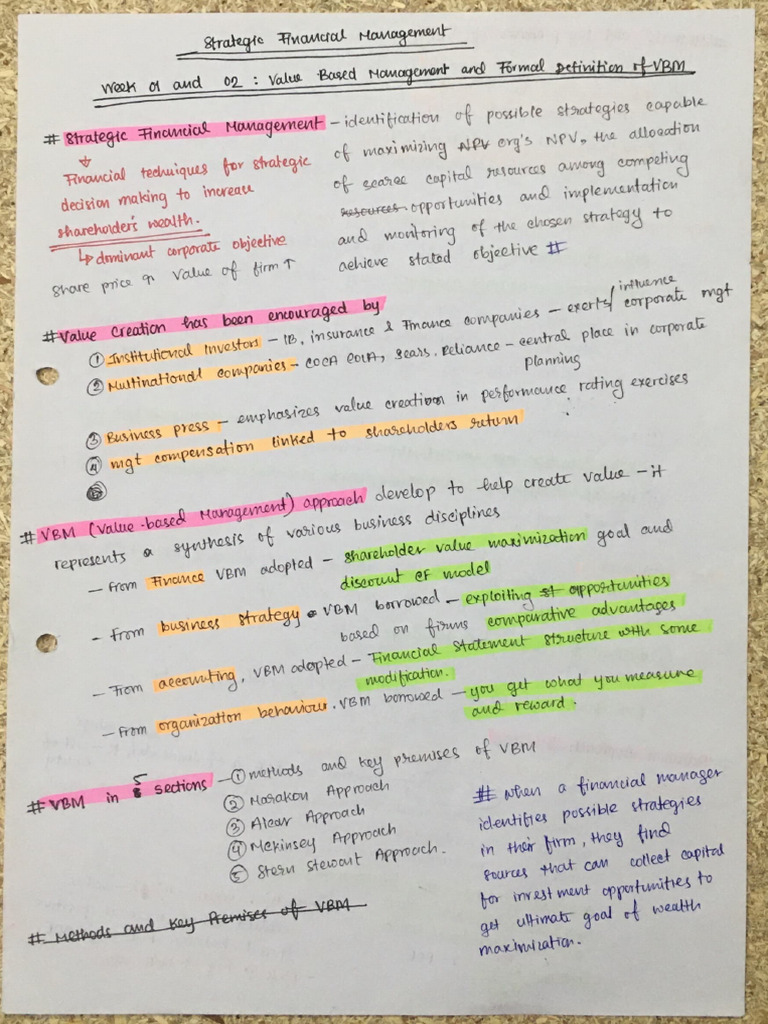 Strategic Financial Management
Week 01 and 02 : Value Based Management and Formal Definition of VBM
# Strategic Financial Management – identification of possible strategies capable
of maximizing NPV org's NPV, the allocation
of scarce capital resources among competing
resources opportunities and implementation
and monitoring of the chosen strategy to
achieve stated objective #
↓
Financial techniques for strategic
decision making to increase
shareholder's wealth.
↳ dominant corporate objective
Share price ↑, Value of firm ↑
# Value Creation has been encouraged by
① Institutional Investors – IB, insurance & Finance companies – exerts/influence corporate mgt
② Multinational companies – COCA COLA, Sears, Reliance – central place in corporate
planning
③ Business press – emphasizes value creation in performance rating exercises
④ mgt compensation linked to shareholders return
# VBM (Value-based Management) approach develop to help create value – it
represents a synthesis of various business disciplines
– From Finance VBM adopted – shareholder value maximization goal and
discount CF model
– From business strategy VBM borrowed – exploiting opportunities
based on firms comparative advantages
– From accounting, VBM adopted – Financial Statement structure with some
modification.
– From organization behaviour, VBM borrowed – you get what you measure
and reward.
# VBM in 5 sections – ① methods and key premises of VBM
② Marakon Approach
③ Alcar Approach
④ Mckinsey Approach
⑤ Stern Stewart Approach.
# When a financial manager
identifies possible strategies
in their firm, they find
sources that can collect capital
for investment opportunities to
get ultimate goal of wealth
maximization.
# Methods and Key Premises of VBM